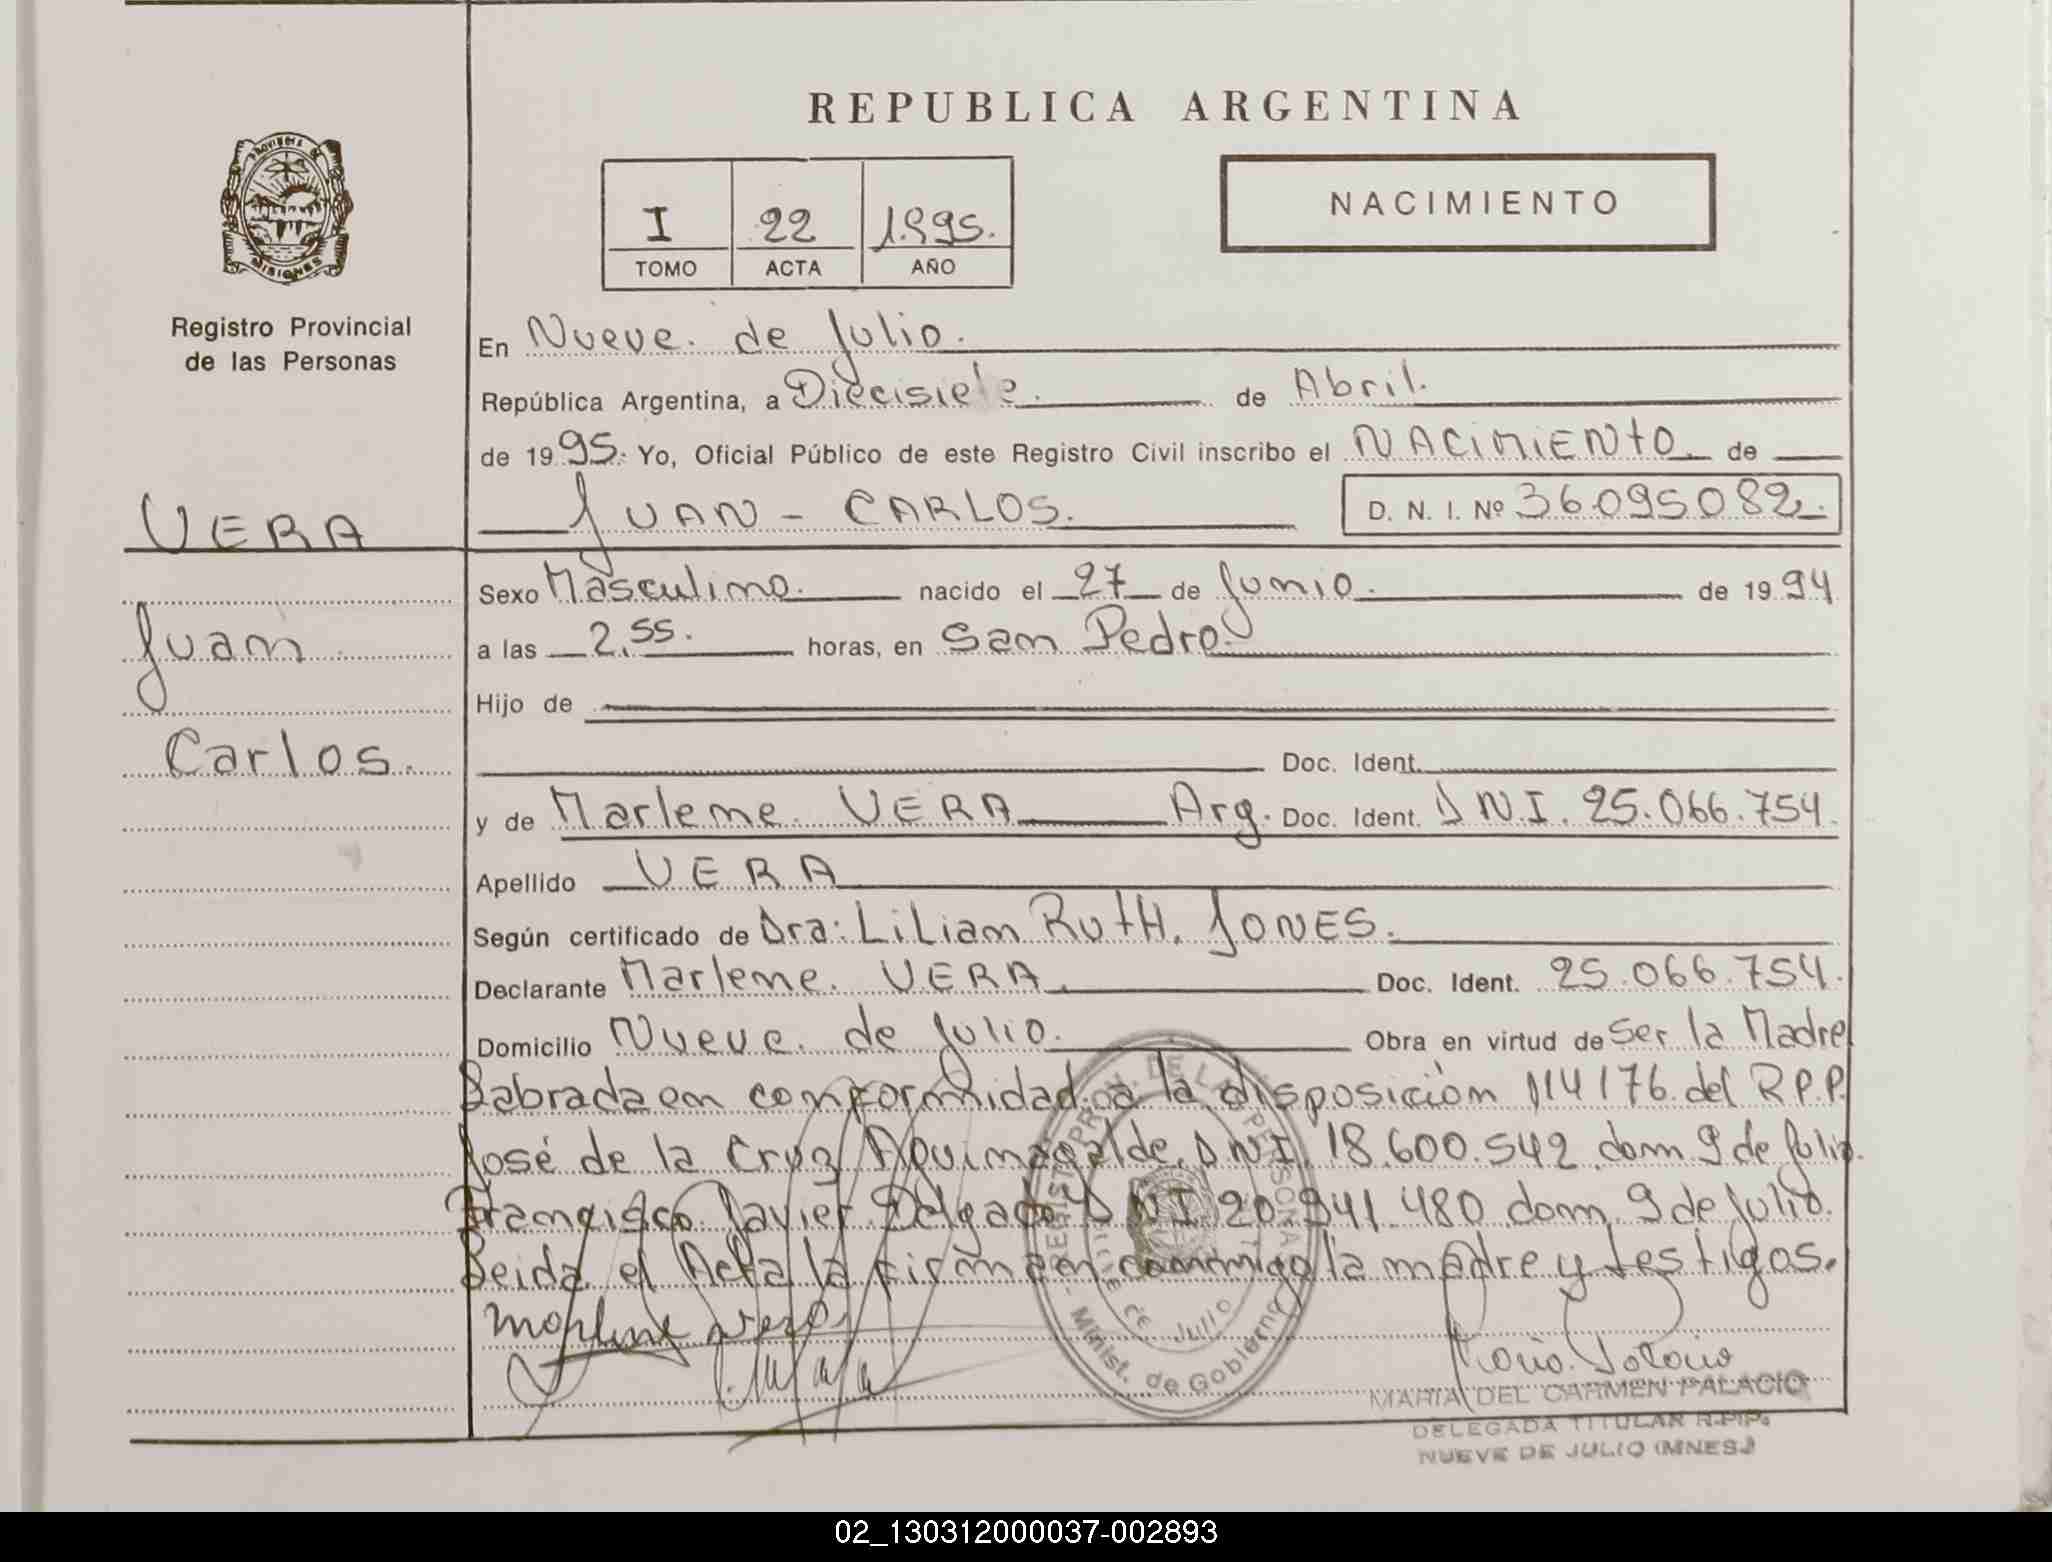 REPUBLICA ARGENTINA
PROVINCIA DE MISIONES
Registro Provincial
de las Personas
I 22 1.995.
TOMO ACTA AÑO
NACIMIENTO
En Nueve de Julio.
República Argentina, a Diecisiete. de Abril.
de 1995. Yo, Oficial Público de este Registro Civil inscribo el NACIMIENTO de
JUAN - CARLOS. D. N. I. Nº 36.095.082.
VERA
Juan
Carlos.
Sexo Masculino. nacido el 27 de Junio. de 1994
a las 2,55. horas, en San Pedro.
Hijo de
Doc. Ident.
y de Marlene VERA Arg. Doc. Ident. DNI. 25.066.754.
Apellido VERA
Según certificado de Dra: LiLian RutH. JONES.
Declarante Marlene VERA. Doc. Ident. 25.066.754.
Domicilio Nueve de Julio. Obra en virtud de Ser la Madre
Labrada en conformidad a la disposición 114/76 del R.P.P.
José de la Cruz DNI. 18.600.542 dom 9 de Julio.
Francisco Javier Delgado DNI 20.941.480 dom. 9 de Julio.
Leida el Acta la firman conmigo la madre y testigos.
Marlene Vera
REGISTRO PROV. DE LAS PERSONAS
Minist. de Gobierno
DE JULIO
MARIA DEL CARMEN PALACIO
DELEGADA TITULAR R.P.P.
NUEVE DE JULIO (MNES.)
02_130312000037-002893